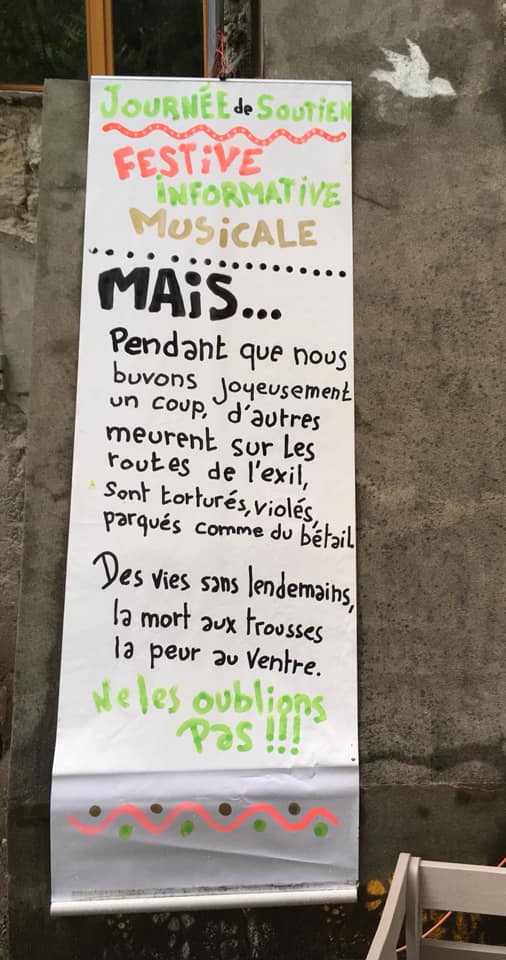 JOURNÉE de SOUTiEN
FESTiVE
iNFORMATiVE
MUSiCALE
MAiS...
Pendant que nous
buvons Joyeusement
un coup, d'autres
meurent sur Les
routes de l'exil,
sont torturés, violés,
parqués comme du bétail
Des vies sans lendemains,
la mort aux trousses
la peur au ventre.
Ne les oublions
pas !!!